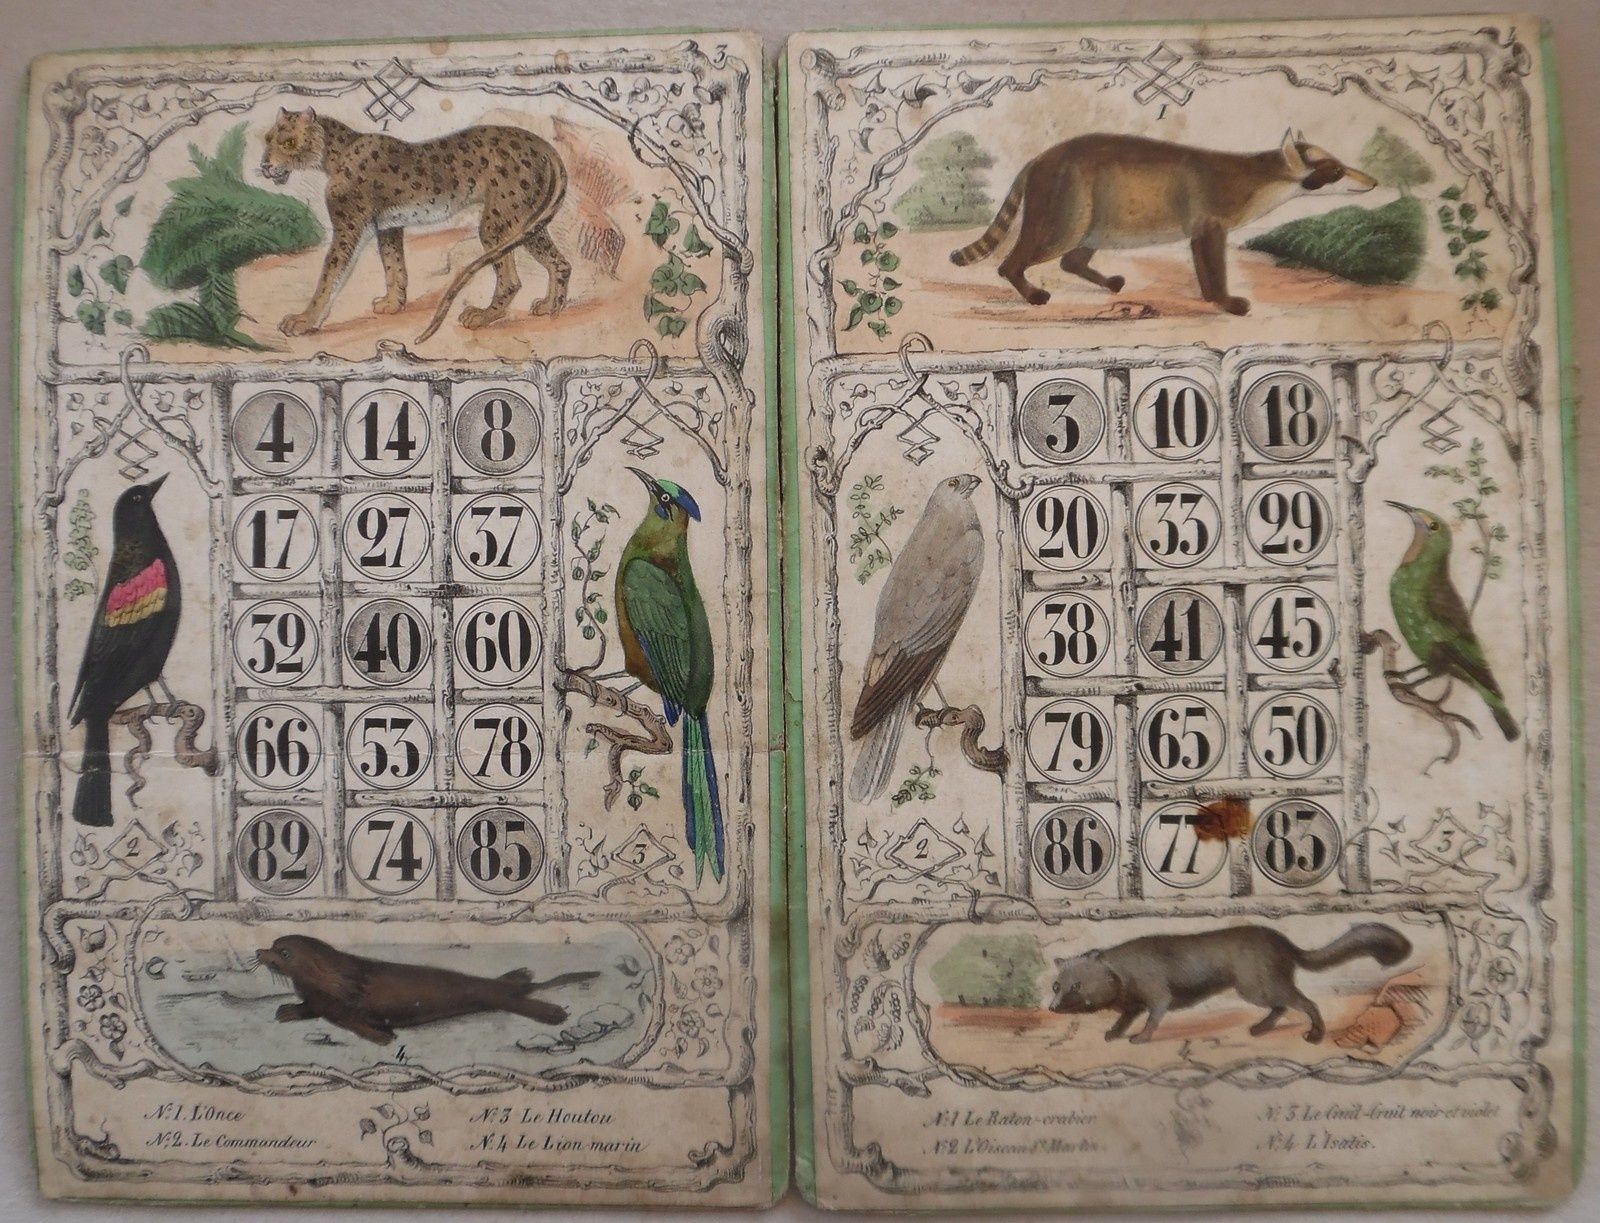 3
1
4 14 8
17 27 37
32 40 60
66 53 78
82 74 85
2
3
4
N.º 1. L'Once
N.º 2. Le Commandeur
N.º 3 Le Houtou
N.º 4 Le Lion-marin
4
1
3 10 18
20 33 29
38 41 45
79 65 50
86 77 83
2
3
4
N.º 1 Le Raton-crabier
N.º 2 L'Oiseau St Martin
N.º 3. Le Guit-Guit noir et violet
N.º 4 L'Isatis.